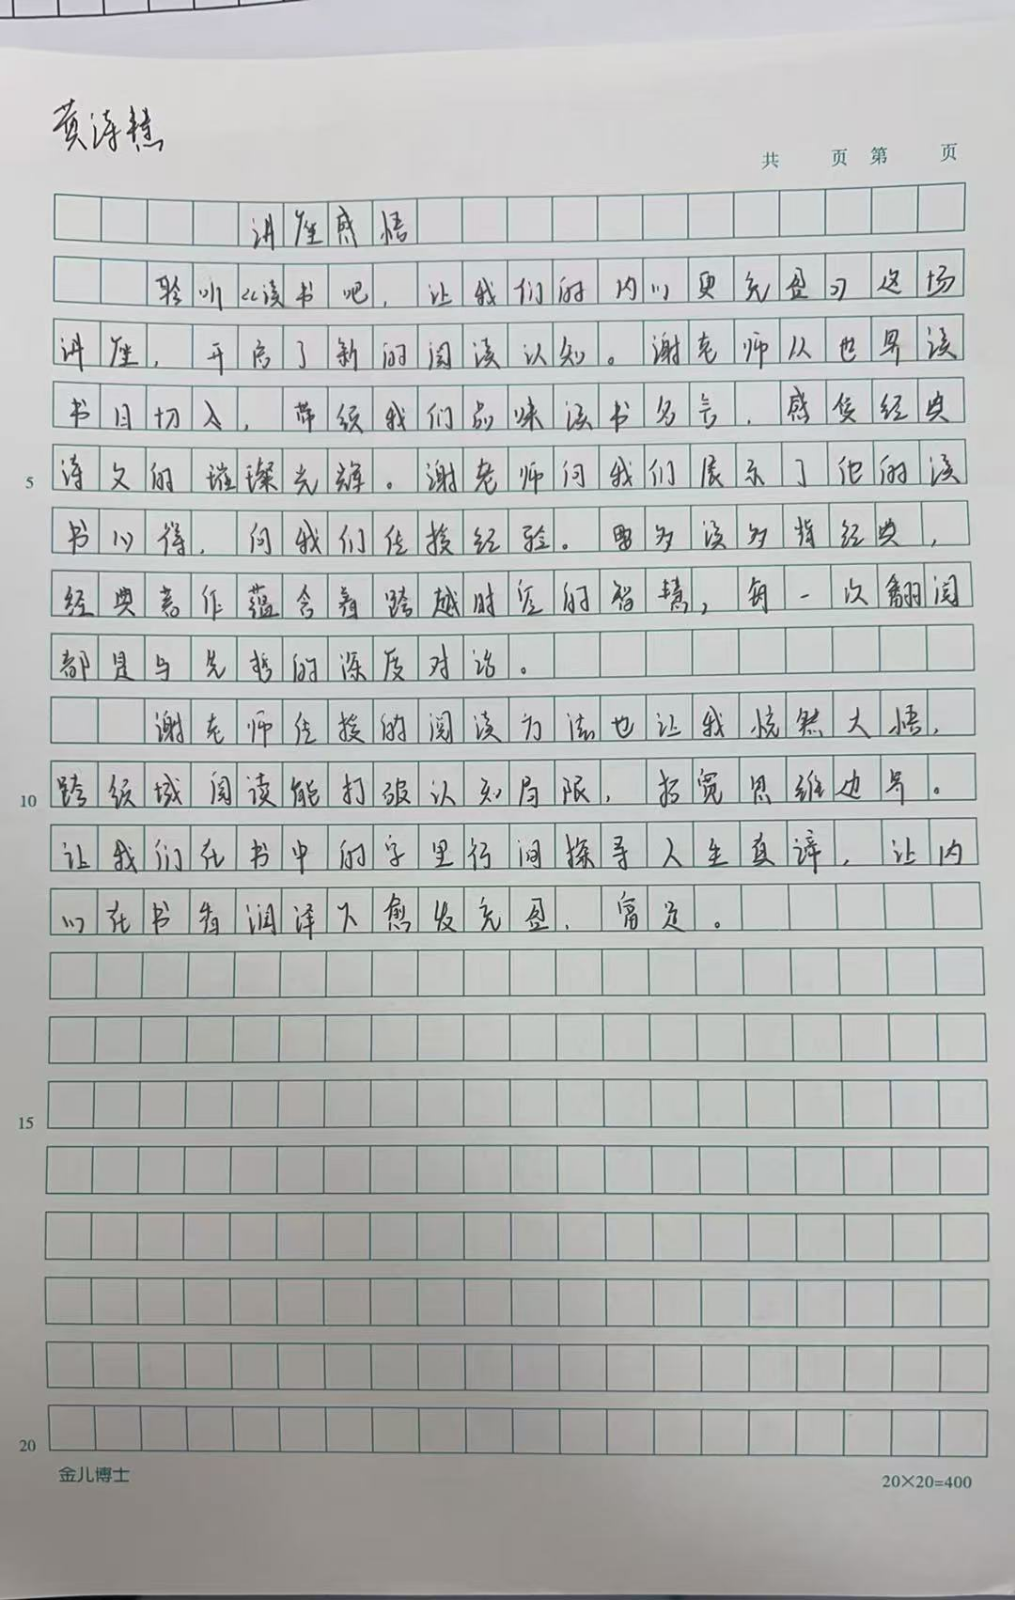 黄诗慧
共 页 第 页
讲座感悟
聆听《读书吧，让我们的内心更充盈》这场
讲座，开启了新的阅读认知。谢老师从世界读
书日切入，带领我们品味读书名言，感受经典
5 诗文的璀璨光辉。谢老师向我们展示了他的读
书心得，向我们传授经验。要多读多背经典，
经典著作蕴含着跨越时空的智慧，每一次翻阅
都是与先哲的深度对话。
谢老师传授的阅读方法也让我恍然大悟，
10 跨领域阅读能打破认知局限，拓宽思维边界。
让我们在书中的字里行间探寻人生真谛，让内
心在书香润泽下愈发充盈、富足。
15
20
金儿博士 20×20=400